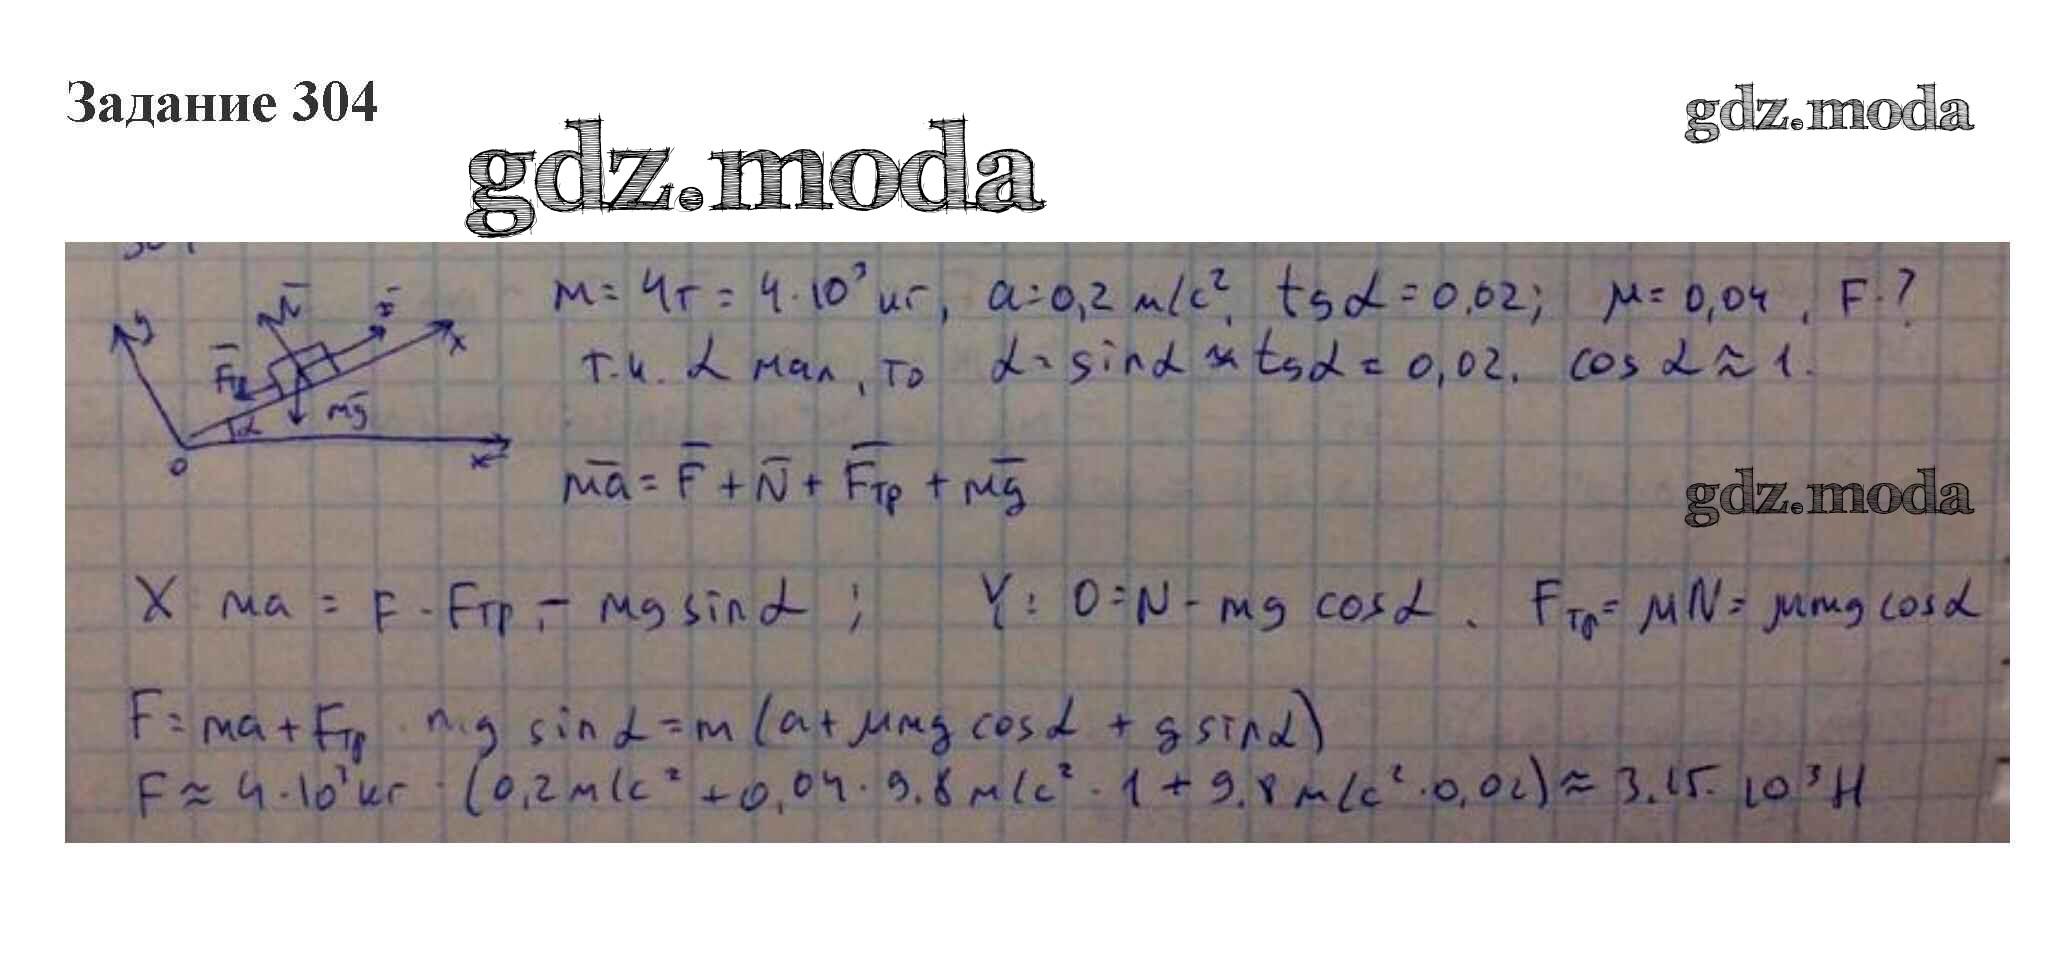 Задание 304
gdz.moda
gdz.moda
m = 4т = 4·10³ кг, a = 0,2 м/с², tg α = 0,02; μ = 0,04, F-?
т.к. α мал, то α ≈ sin α ≈ tg α = 0,02. cos α ≈ 1.
y N F x
Fтр mg
α
0 x
ma = F + N + Fтр + mg
gdz.moda
X ma = F - Fтр - mg sin α ; Y: 0 = N - mg cos α. Fтр = μN = μmg cos α
F = ma + Fтр · mg sin α = m (a + μmg cos α + g sin α)
F ≈ 4·10³ кг · (0,2 м/с² + 0,04 · 9,8 м/с² · 1 + 9,8 м/с² · 0,02) ≈ 3,15 · 10³ Н